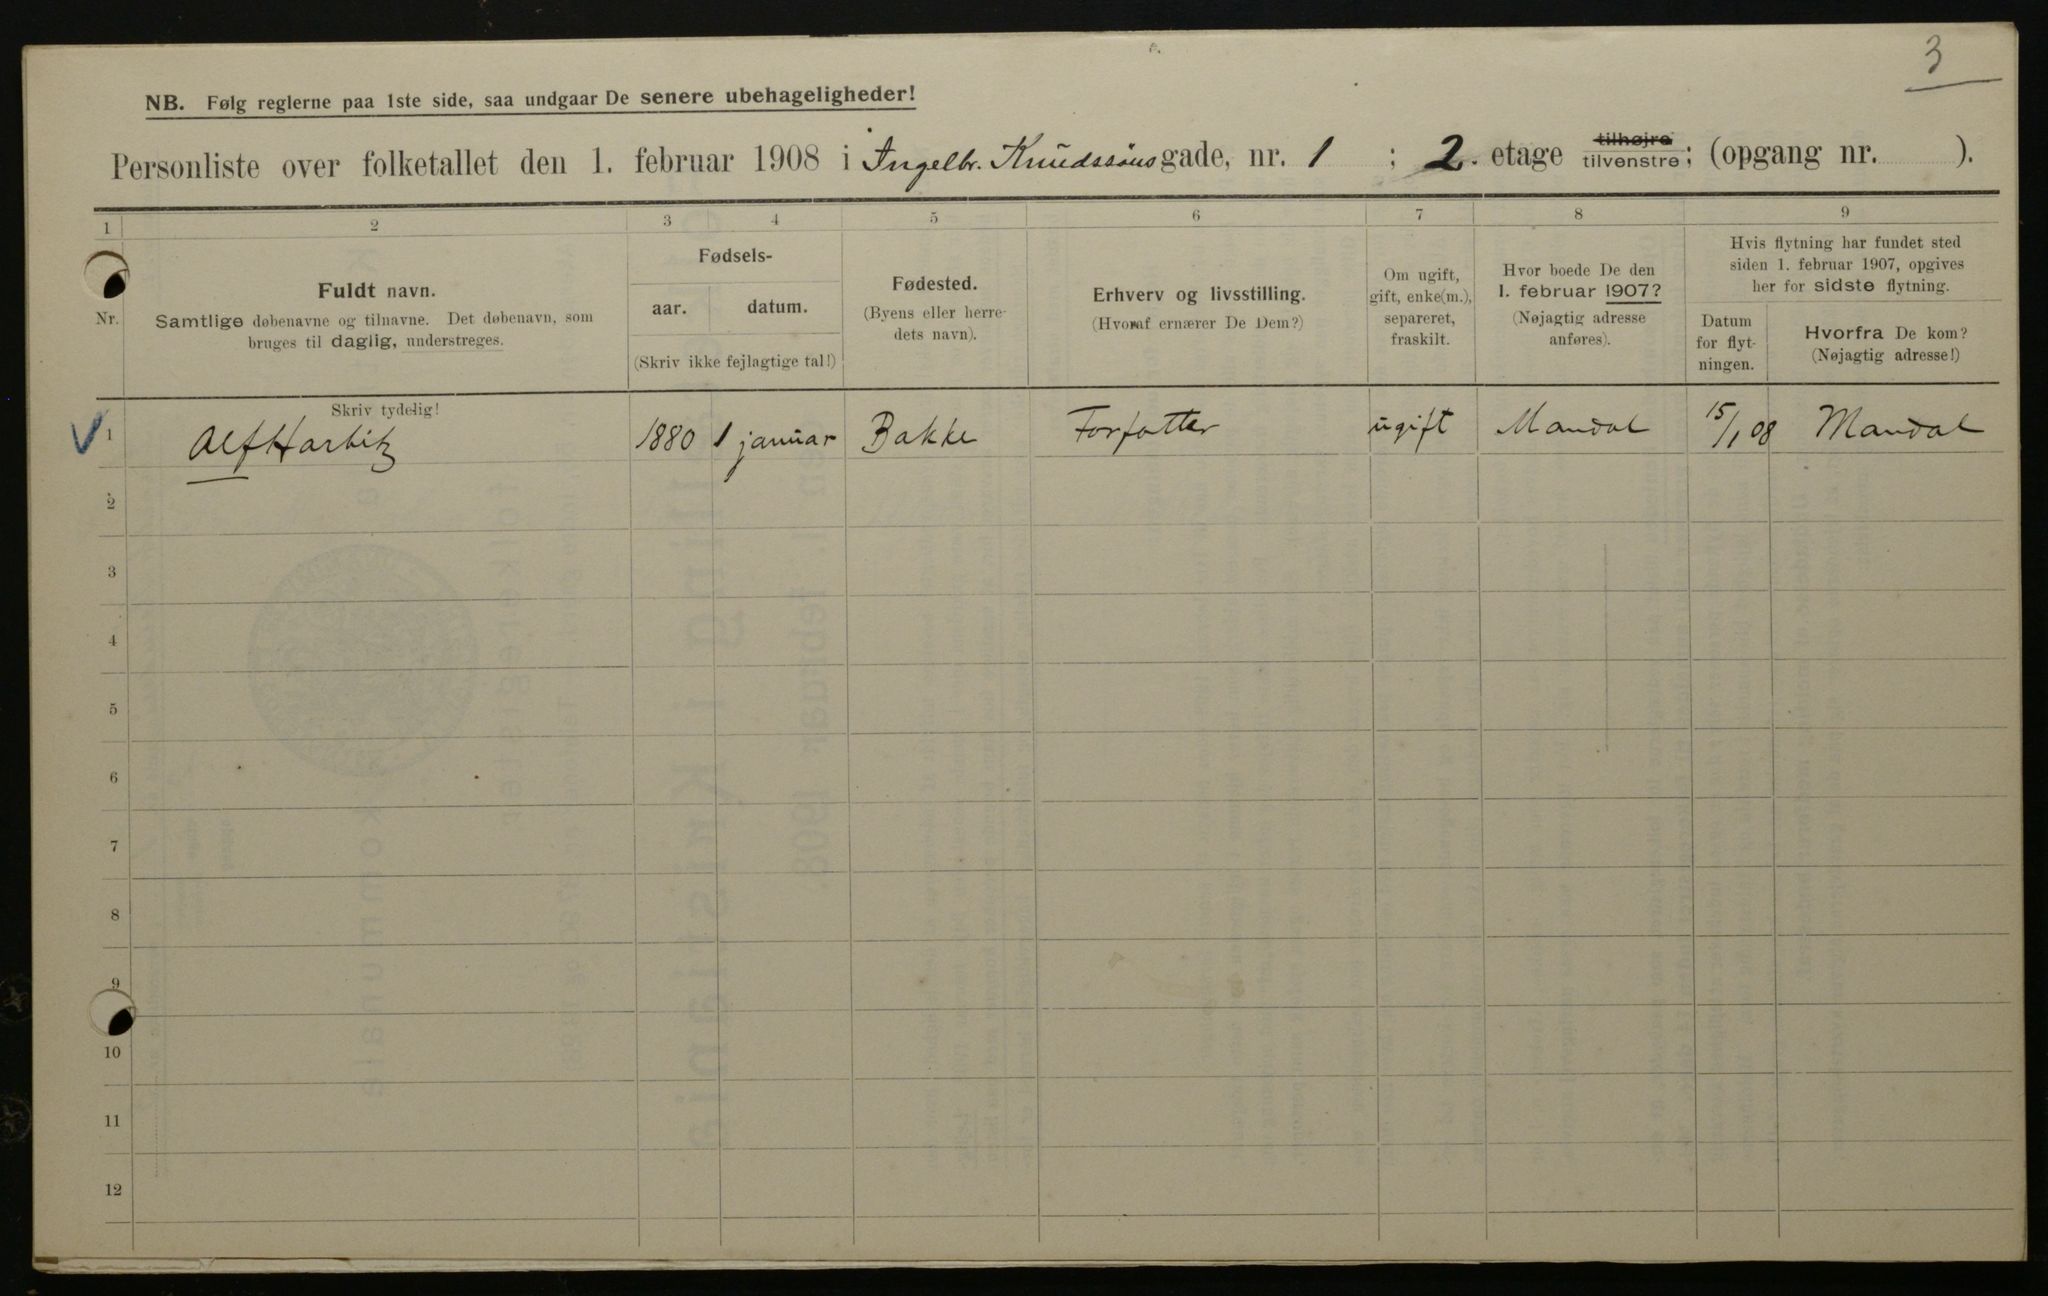 3
NB. Følg reglerne paa 1ste side, saa undgaar De senere ubehageligheder!
Personliste over folketallet den 1. februar 1908 i Ingelbr. Knudssöns gade, nr. 1 ; 2. etage tilhøjre tilvenstre; (opgang nr. ).
1 2 3 4 5 6 7 8 9
Nr.
Fuldt navn.
Samtlige døbenavne og tilnavne. Det døbenavn, som
bruges til daglig, understreges.
Skriv tydelig!
Fødsels-
aar. datum.
(Skriv ikke fejlagtige tal!)
Fødested.
(Byens eller herre-
dets navn).
Erhverv og livsstilling.
(Hvoraf ernærer De Dem?)
Om ugift,
gift, enke(m.),
separeret,
fraskilt.
Hvor boede De den
1. februar 1907?
(Nøjagtig adresse
anføres).
Hvis flytning har fundet sted
siden 1. februar 1907, opgives
her for sidste flytning.
Datum
for flyt-
ningen.
Hvorfra De kom?
(Nøjagtig adresse!)
1 Alf Harbitz 1880 1 januar Bakke Forfatter ugift Mandal 15/1 08 Mandal
2
3
4
5
6
7
8
9
10
11
12